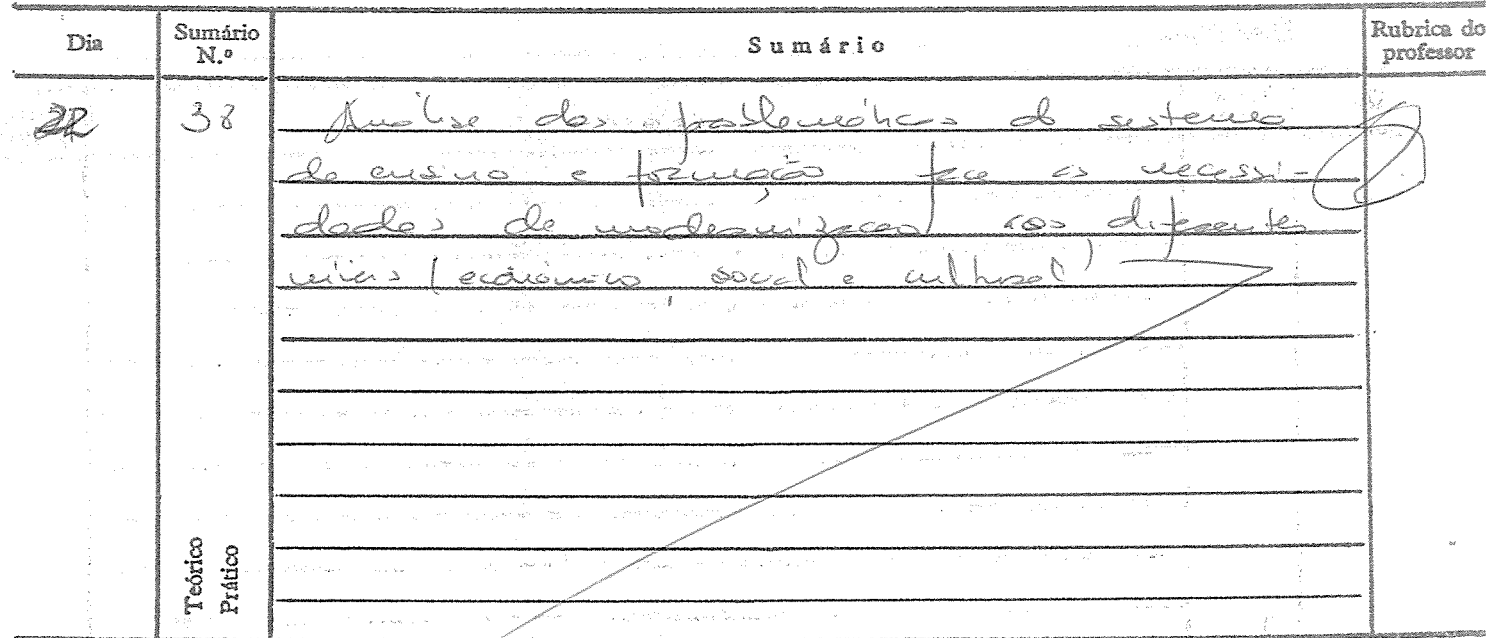 Dia Sumário N.º Sumário Rubrica do professor
22 38 Análise das problemáticas do sistema
de ensino e formação face às necessi-
dades de modernização aos diferentes
níveis (económico, social e cultural)
Teórico
Prático